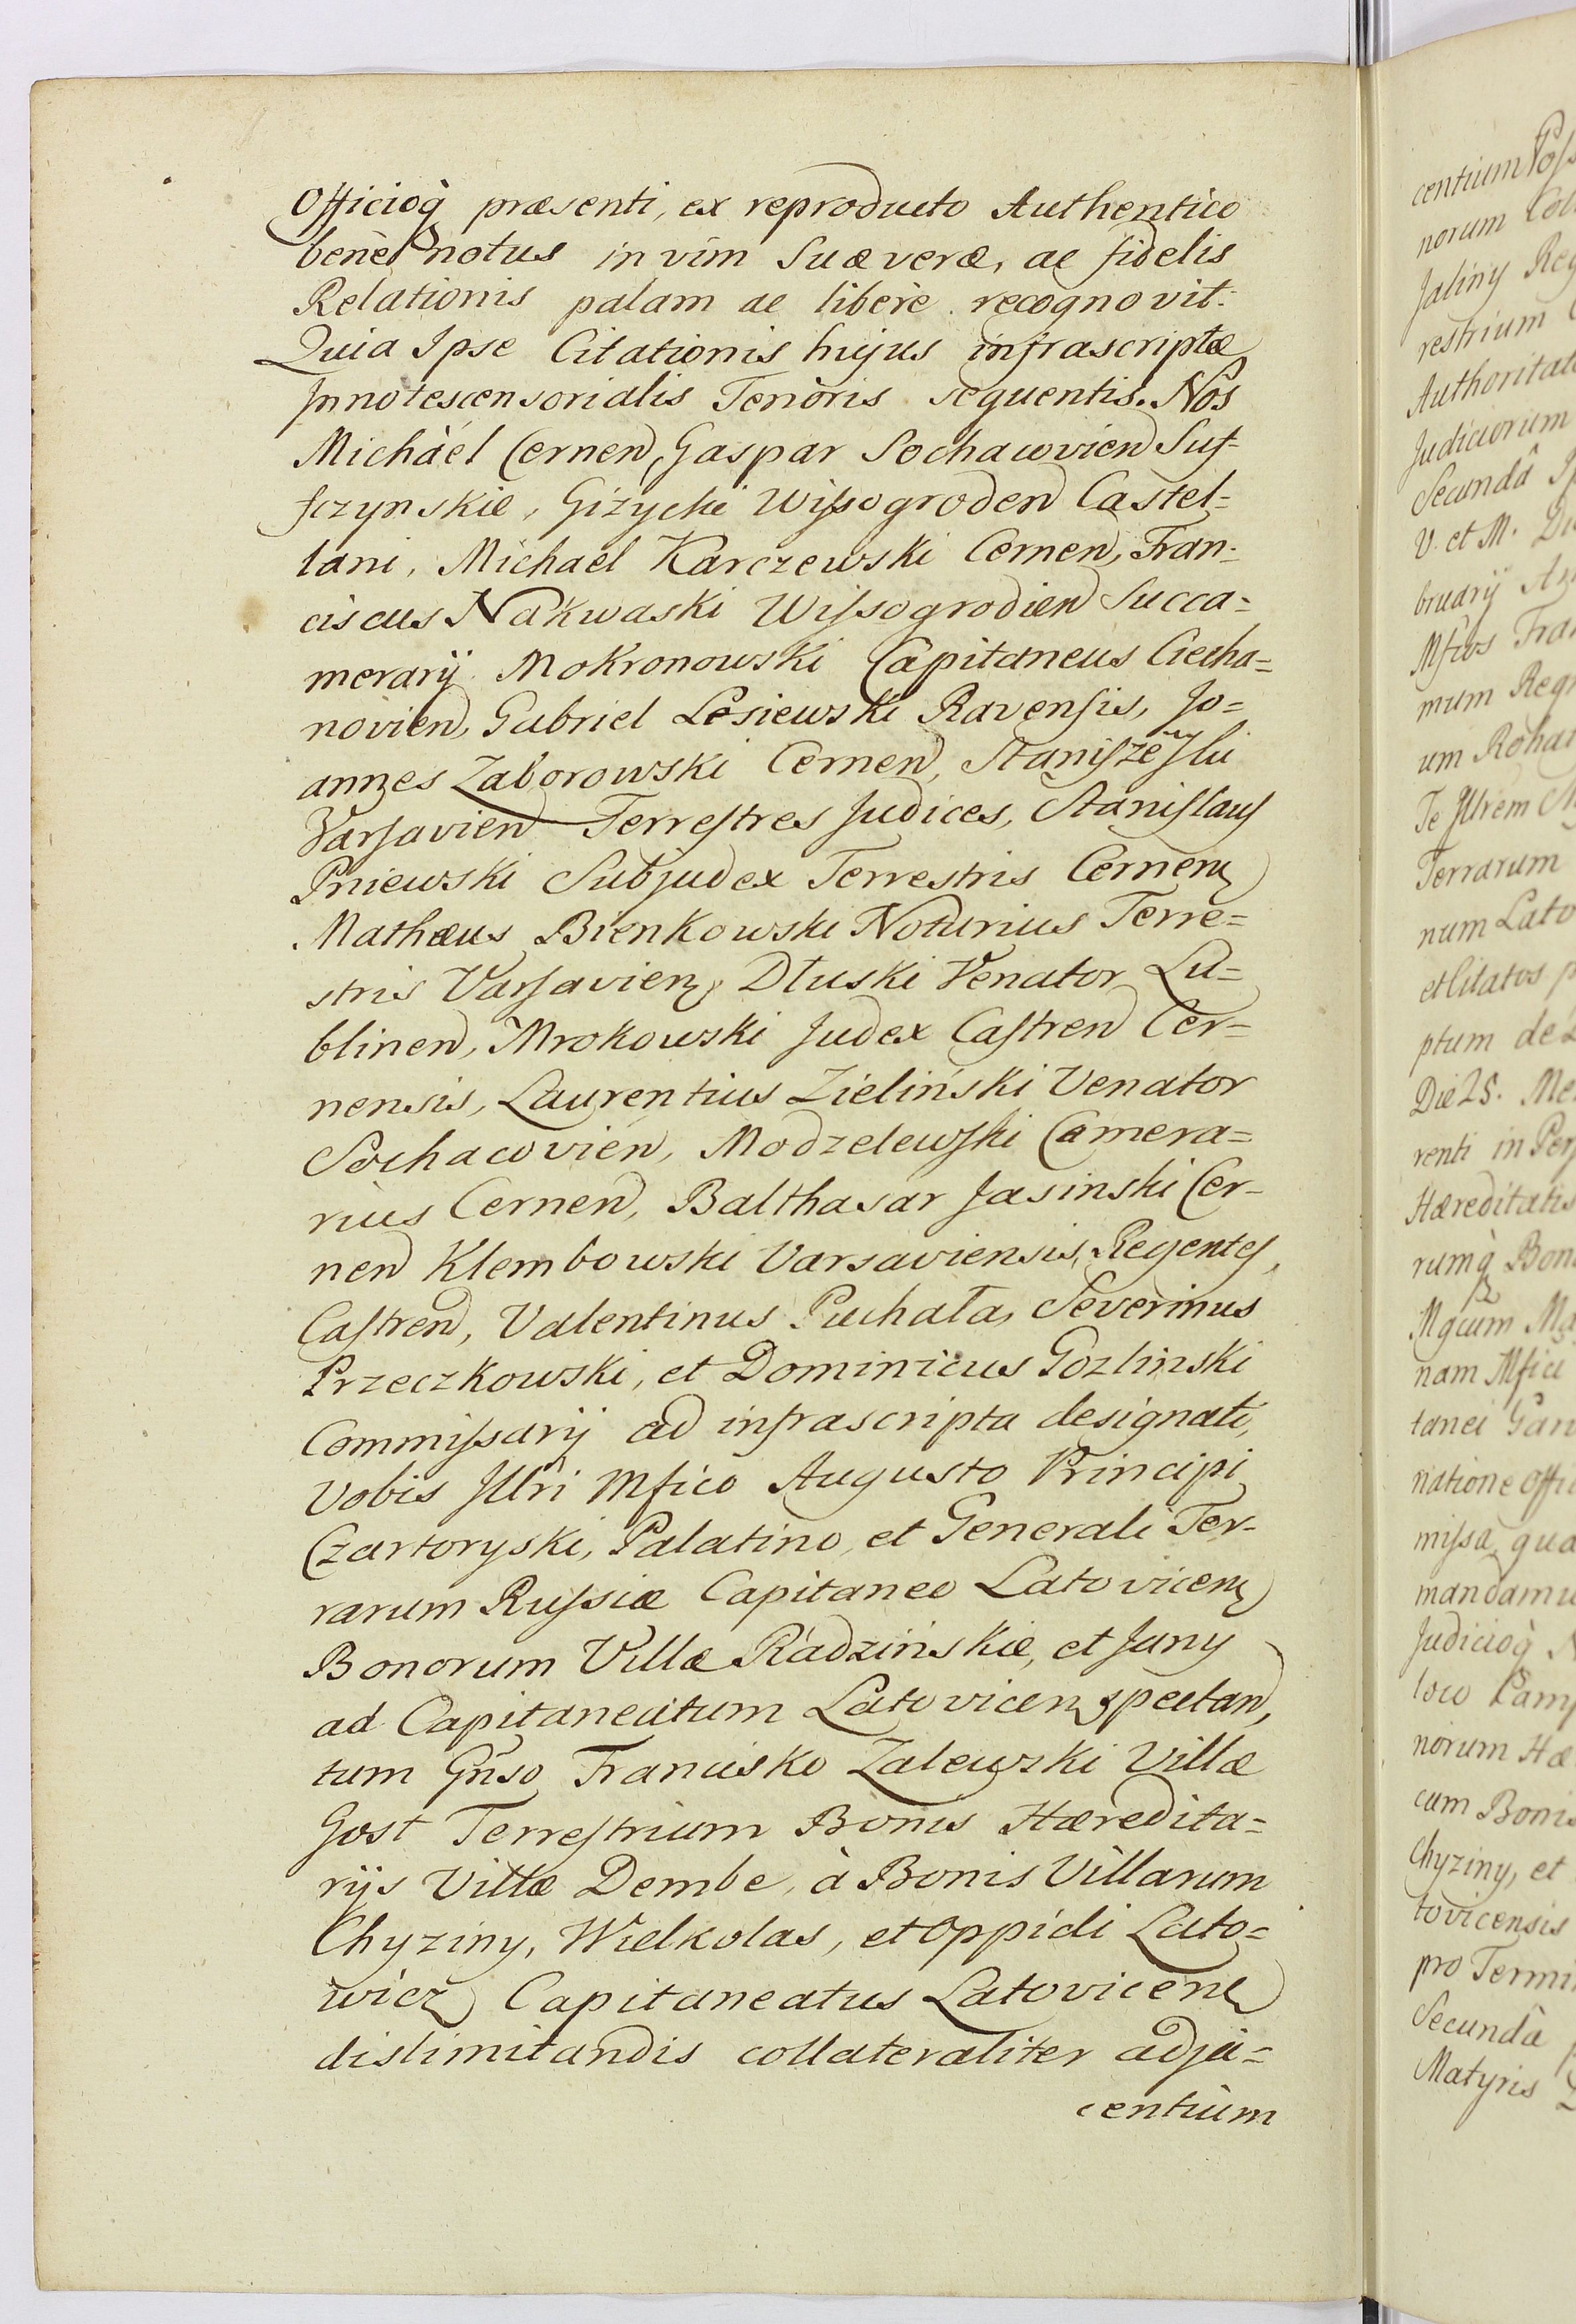 Officioq̀ præsenti, ex reproducto Authentico
benè notus in vim Suæ veræ, ac fidelis
Relationis palam ac liberè recognovit.
Quia Ipse Citationis hujus infrascriptæ
Jnnotescensorialis Tenoris sequentis. Nos
Michàél Cernen, Gaspar Sochacovien Suf-
fczynskie, Giżycki Wissogroden Castel=
lani, Michaél Karczewski Cernen, Fran-
ciscus Nakwaski Wissogrodien Succa=
merarij Mokronowski Capitaneus Ciecha=
novien, Gabriel Lesiewski Ravensis, Jo=
annes Zaborowski Cernen, Staniszewski
Varsavien Terrestres Judices, Stanislaus
Pniewski Subjudex Terrestris Cernen
Mathæus Bienkowski Notarius Terre=
stris Varsavien, Dłuski Venator Lu=
blinen, Mrokowski Judex Castren Cer=
nensis, Laurentius Zieliński Venator
Sochacovien, Modzelewski Camera=
rius Cernen, Balthasar Jasinski Cer-
nen Klembowski Varsaviensis, Regentes,
Castren, Valentinus Puchała, Severinus
Przeczkowski, et Dominicus Gozlinski
Commissarij ad infrascripta designati,
Vobis Jllri Mfico Augusto Principi
Czartoryski, Palatino, et Generali Ter-
rarum Russiæ Capitaneo Latovicen
Bonorum Villæ Radzińskie, et Jany
ad Capitaneatum Latovicen spectan,
tum Gnso Francisko Zalewski Villæ
Gost Terrestrium Bonis Hæredita=
rijs Villæ Dembe, à Bonis Villarum
Chyziny, Wielkolas, et Oppidi Lato=
wicz Capitaneatus Latovicen
dislimitandis collateraliter adja=
centium
centium
norum
Jaliny
restrium
Judiciorum
Secundâ
V. et M.
bruarij
Mficos
mum
um
Terrarum
num
et Citatos
ptum de
Die 25.
renti in
Hæreditatis
rumq̀
Mgcum
nam Mfici
tanei
natione
missa
mandamu
Judicioq̀
loco
norum Hæ
cum Bonis
Chyziny, et
tovicensis
pro
Secundâ
Matyris